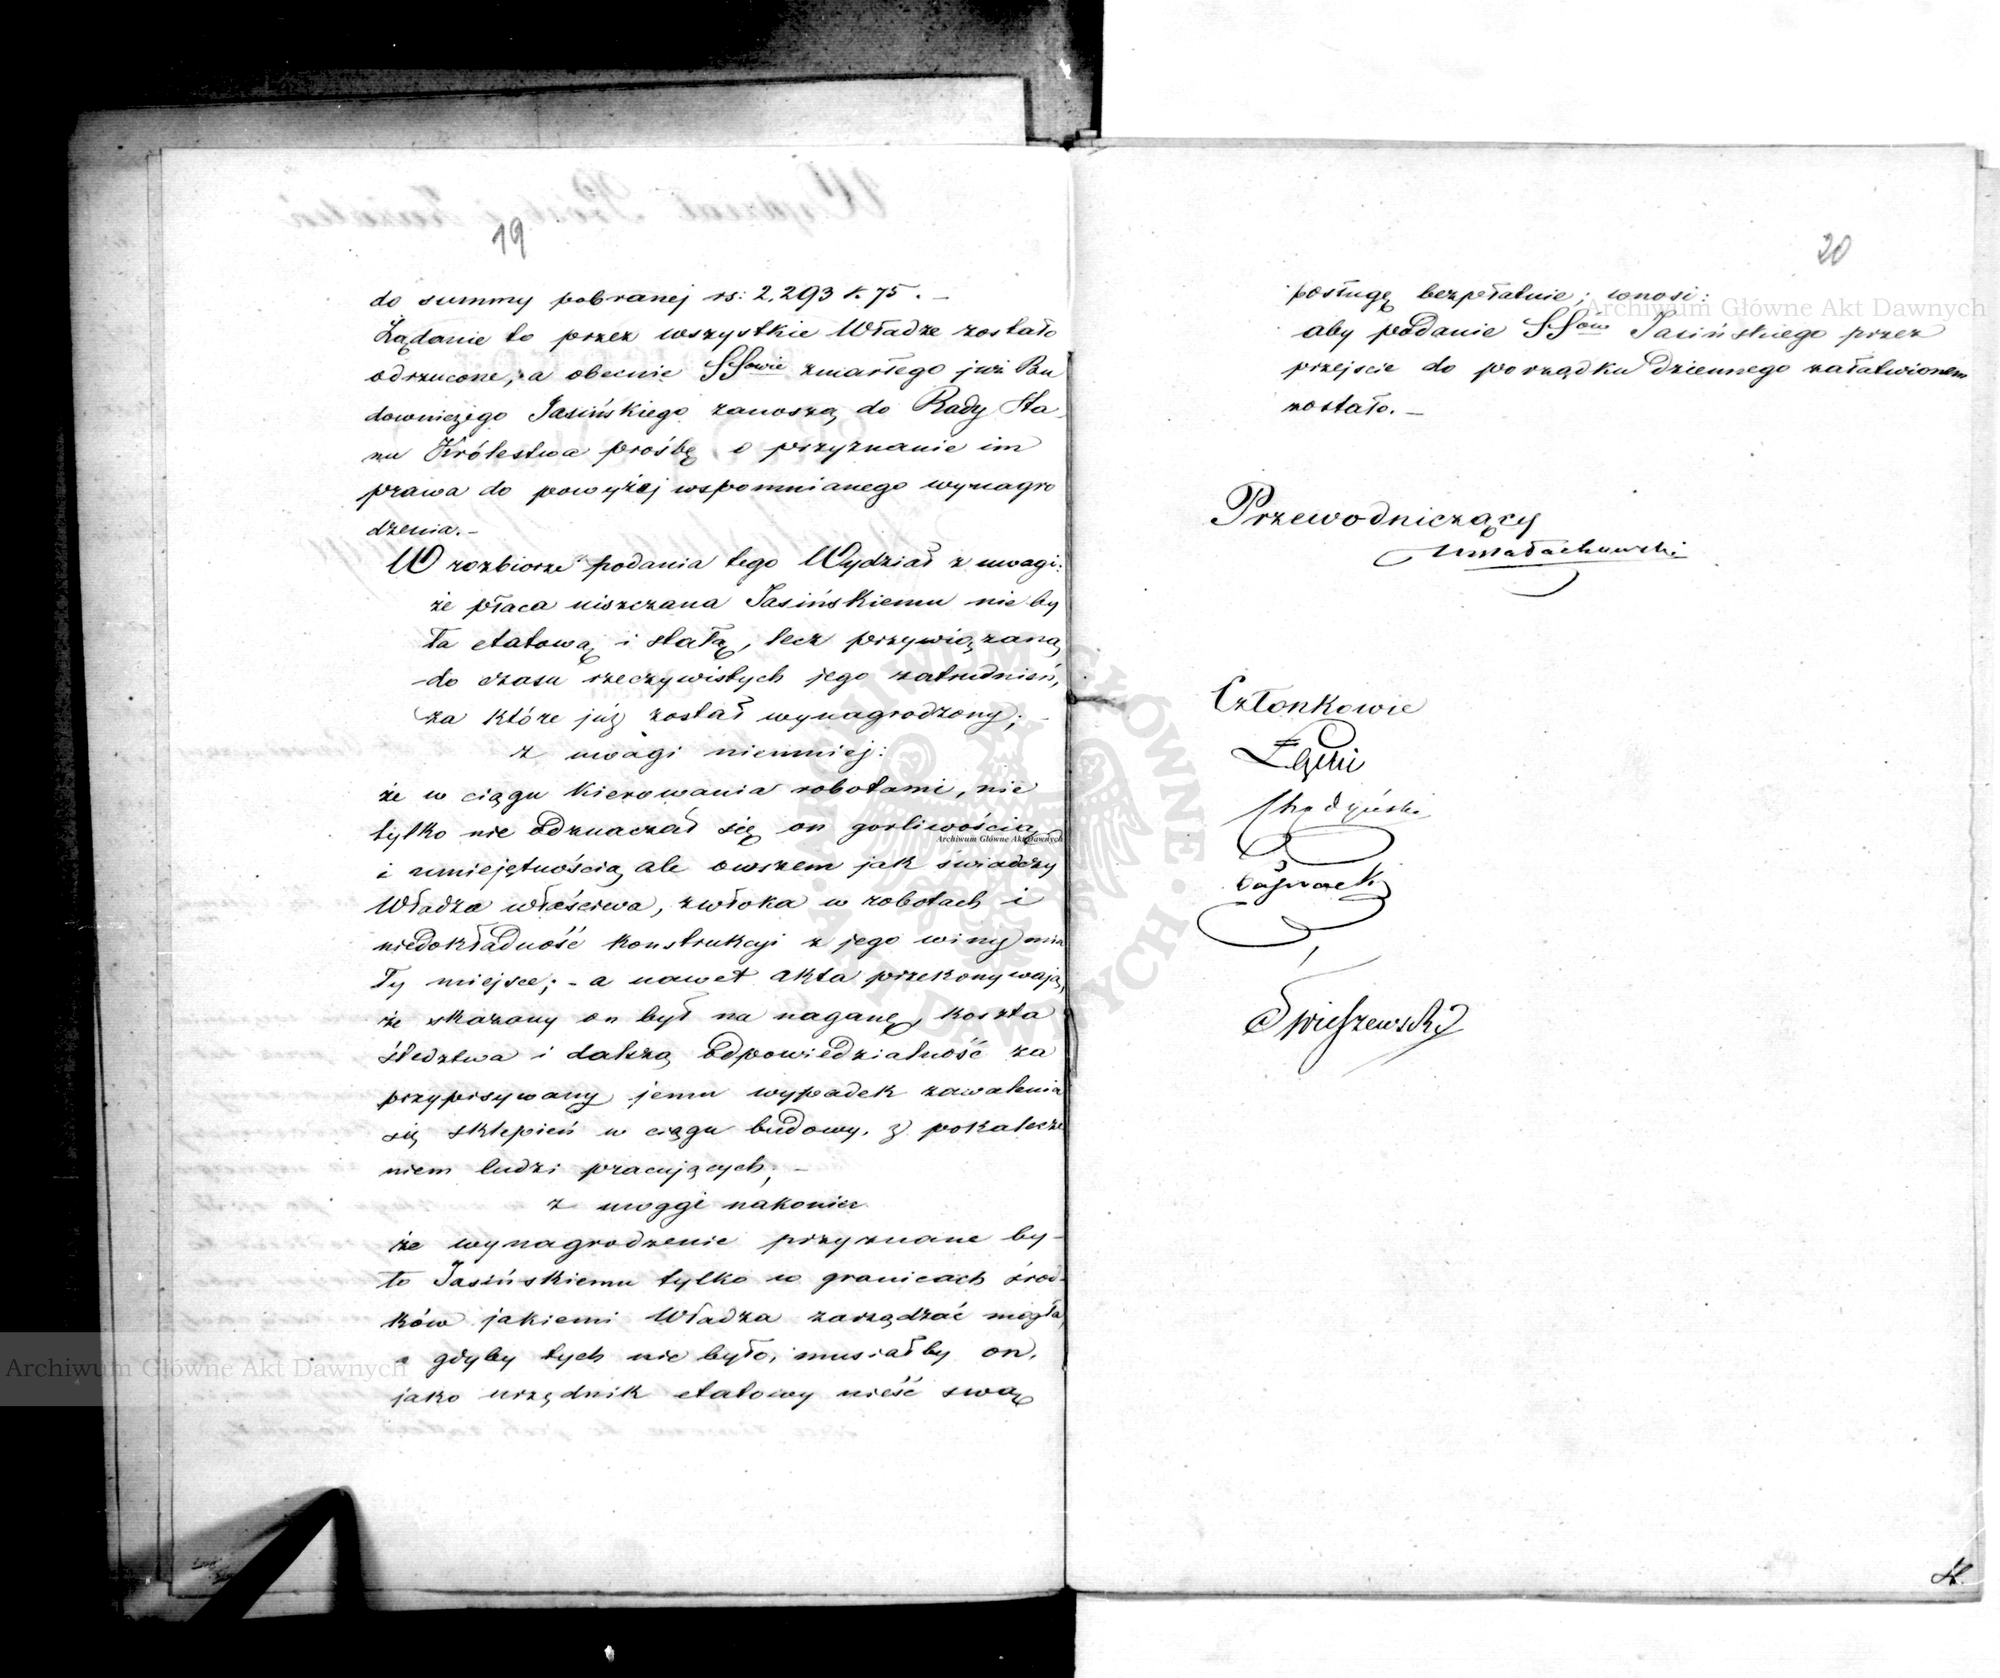 19
do summy pobranej rs: 2,293 k. 75. –
Żądanie to przez wszystkie Władze zostało
odrzucone, a obecnie SSowie zmarłego już Bu
downiczego Jasińskiego zanoszą do Rady Sta-
nu Królestwa prośbę o przyznanie im
prawa do powyżej wspomnianego wynagro
dzenia. –
W rozbiorze podania tego Wydział z uwagi:
że płaca uiszczana Jasińskiemu nie by
ła etatową i stałą, lecz przywiązaną
do czasu rzeczywistych jego zatrudnień,
za które już został wynagrodzony; –
z uwagi niemniej:
że w ciągu kierowania robotami, nie
tylko nie odznaczał się on gorliwością
i umiejętnością, ale owszem jak świadczy
Władza właściwa, zwłoka w robotach i
niedokładność konstrukcyi z jego winy mia
ły miejsce; – a nawet akta przekonywają,
że skazany on był na naganę, koszta
śledztwa i dalszą odpowiedzialność za
przypisywany jemu wypadek zawalenia
się sklepień w ciągu budowy, z pokalecze
niem ludzi pracujących; –
z uwagi nakoniec
że wynagrodzenie przyznane by-
ło Jasińskiemu tylko w granicach środ-
ków jakiemi Władza zarządzać mogła,
a gdyby tych nie było, musiałby on,
jako urzędnik etatowy nieść swą
20
posługę bezpłatnie; wnosi:
aby podanie SSów Jasińskiego przez
przejście do porządku dziennego załatwionem
zostało. –
Przewodniczący
Małachowski
Członkowie
Łęski
Świeszewski
Archiwum Główne Akt Dawnych
Archiwum Główne Akt Dawnych
Archiwum Główne Akt Dawnych